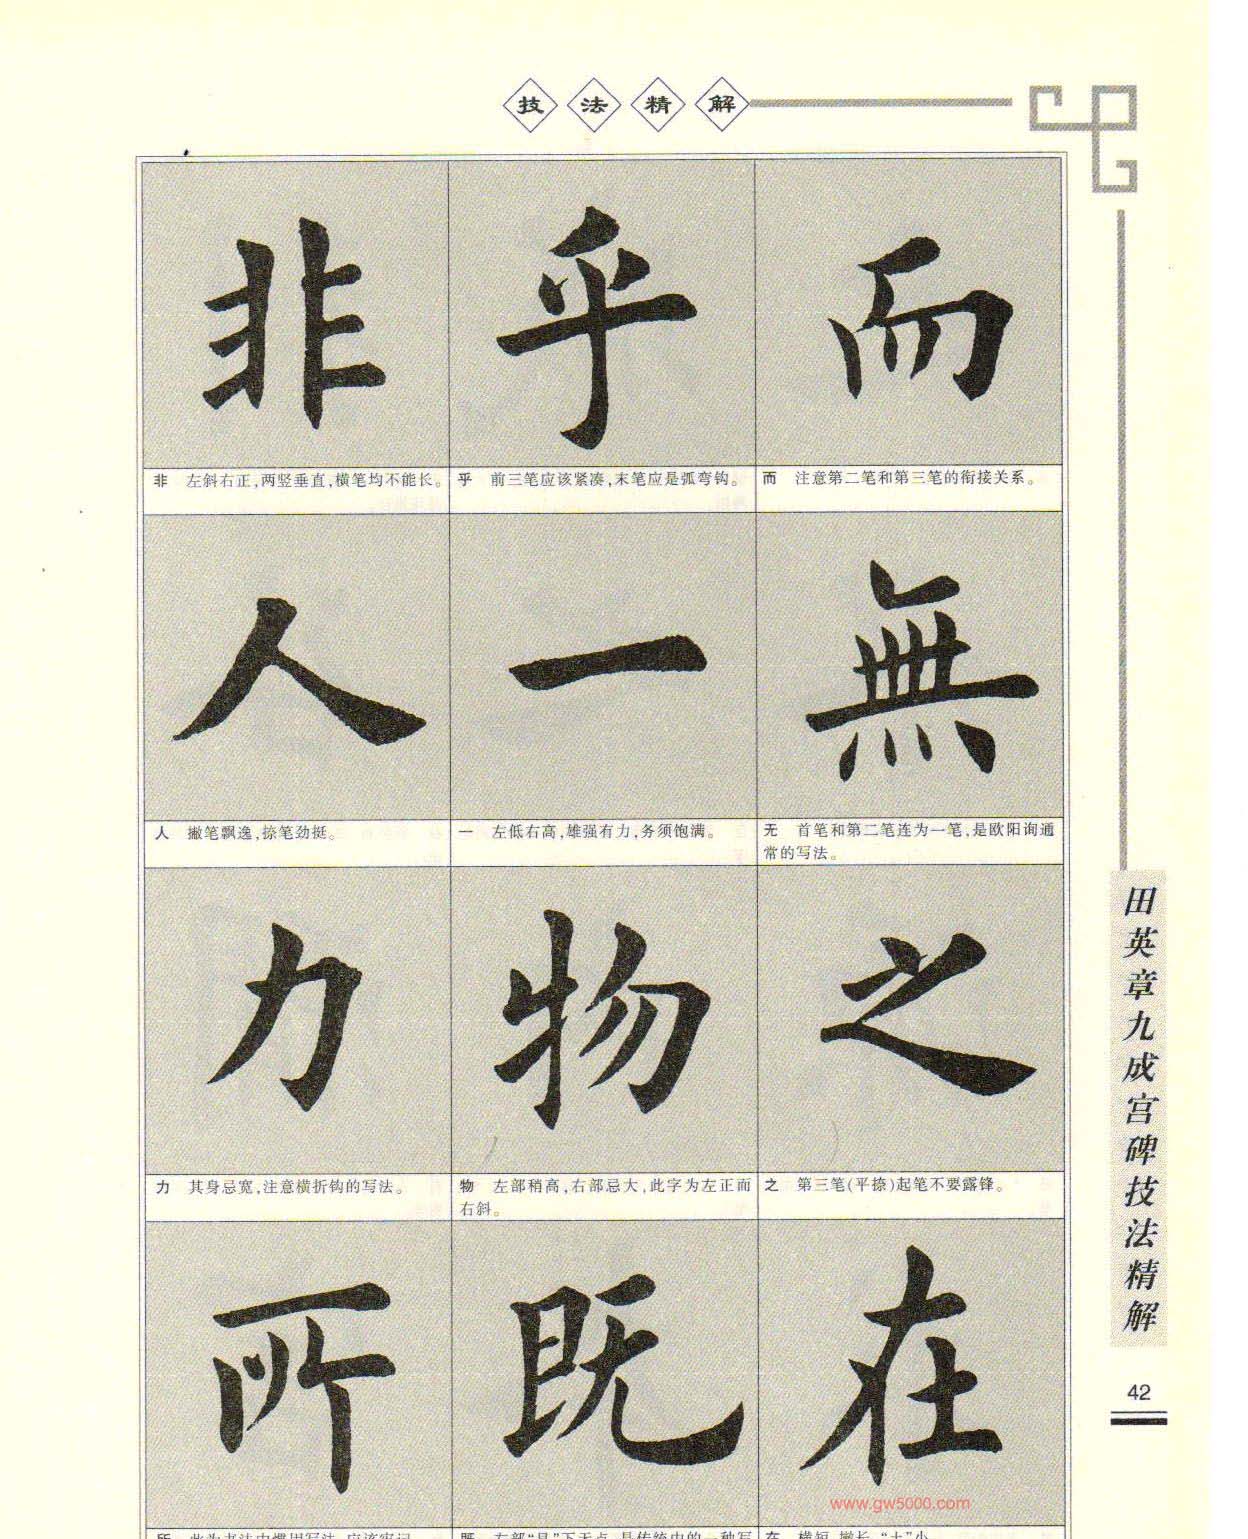 技法精解
非 乎 而
非 左斜右正,两竖垂直,横笔均不能长。
乎 前三笔应该紧凑,末笔应是弧弯钩。
而 注意第二笔和第三笔的衔接关系。
人 一 無
人 撇笔飘逸,捺笔劲挺。
一 左低右高,雄强有力,务须饱满。
无 首笔和第二笔连为一笔,是欧阳询通
常的写法。
力 物 之
力 其身忌宽,注意横折钩的写法。
物 左部稍高,右部忌大,此字为左正而
右斜。
之 第三笔(平捺)起笔不要露锋。
所 既 在
田英章九成宫碑技法精解
42
www.gw5000.com